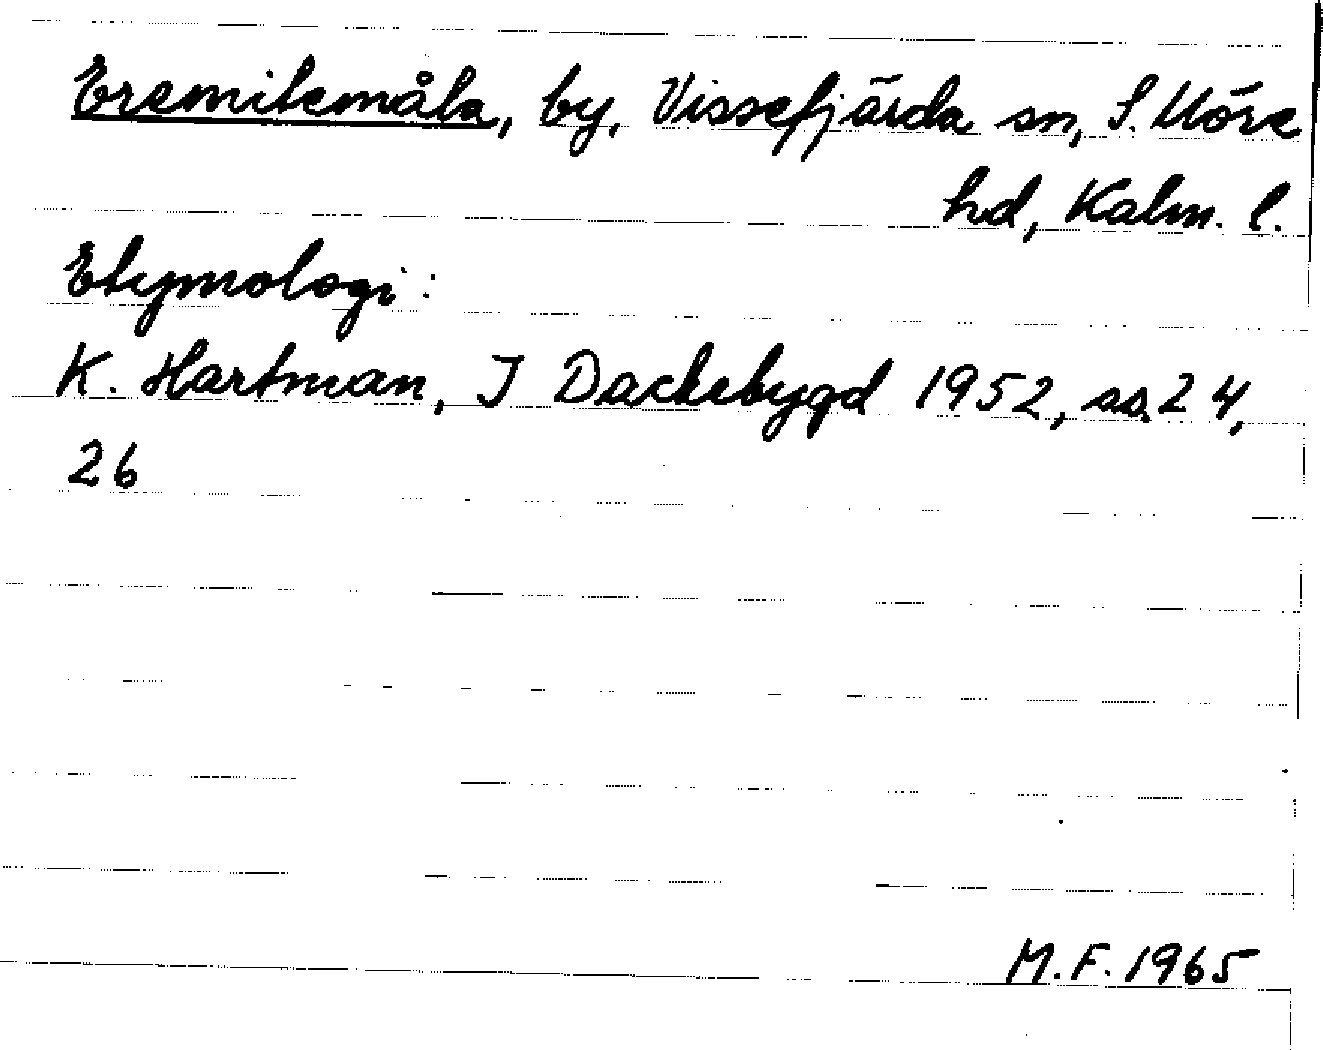 Eremitemåla, by, Vissefjärda sn, S. Möre
hd, Kalm. l.
Etymologi:
K. Hartman, I Dackebygd 1952, ss. 24,
26
M.F. 1965